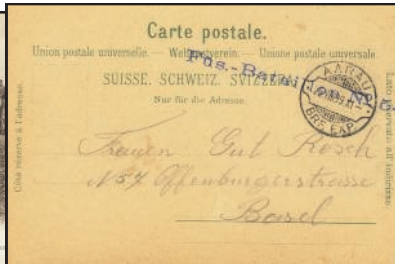 Carte postale.
Union postale universelle. — Weltpostverein. — Unione postale universale
SUISSE. SCHWEIZ. SVIZZERA.
Nur für die Adresse.
Côté réservé à l'adresse.
Lato riservato all'indirizzo.
AARAU
BRF. EXP.
Frauen Gut Rosch
No 57 Offenburgerstrasse
Basel